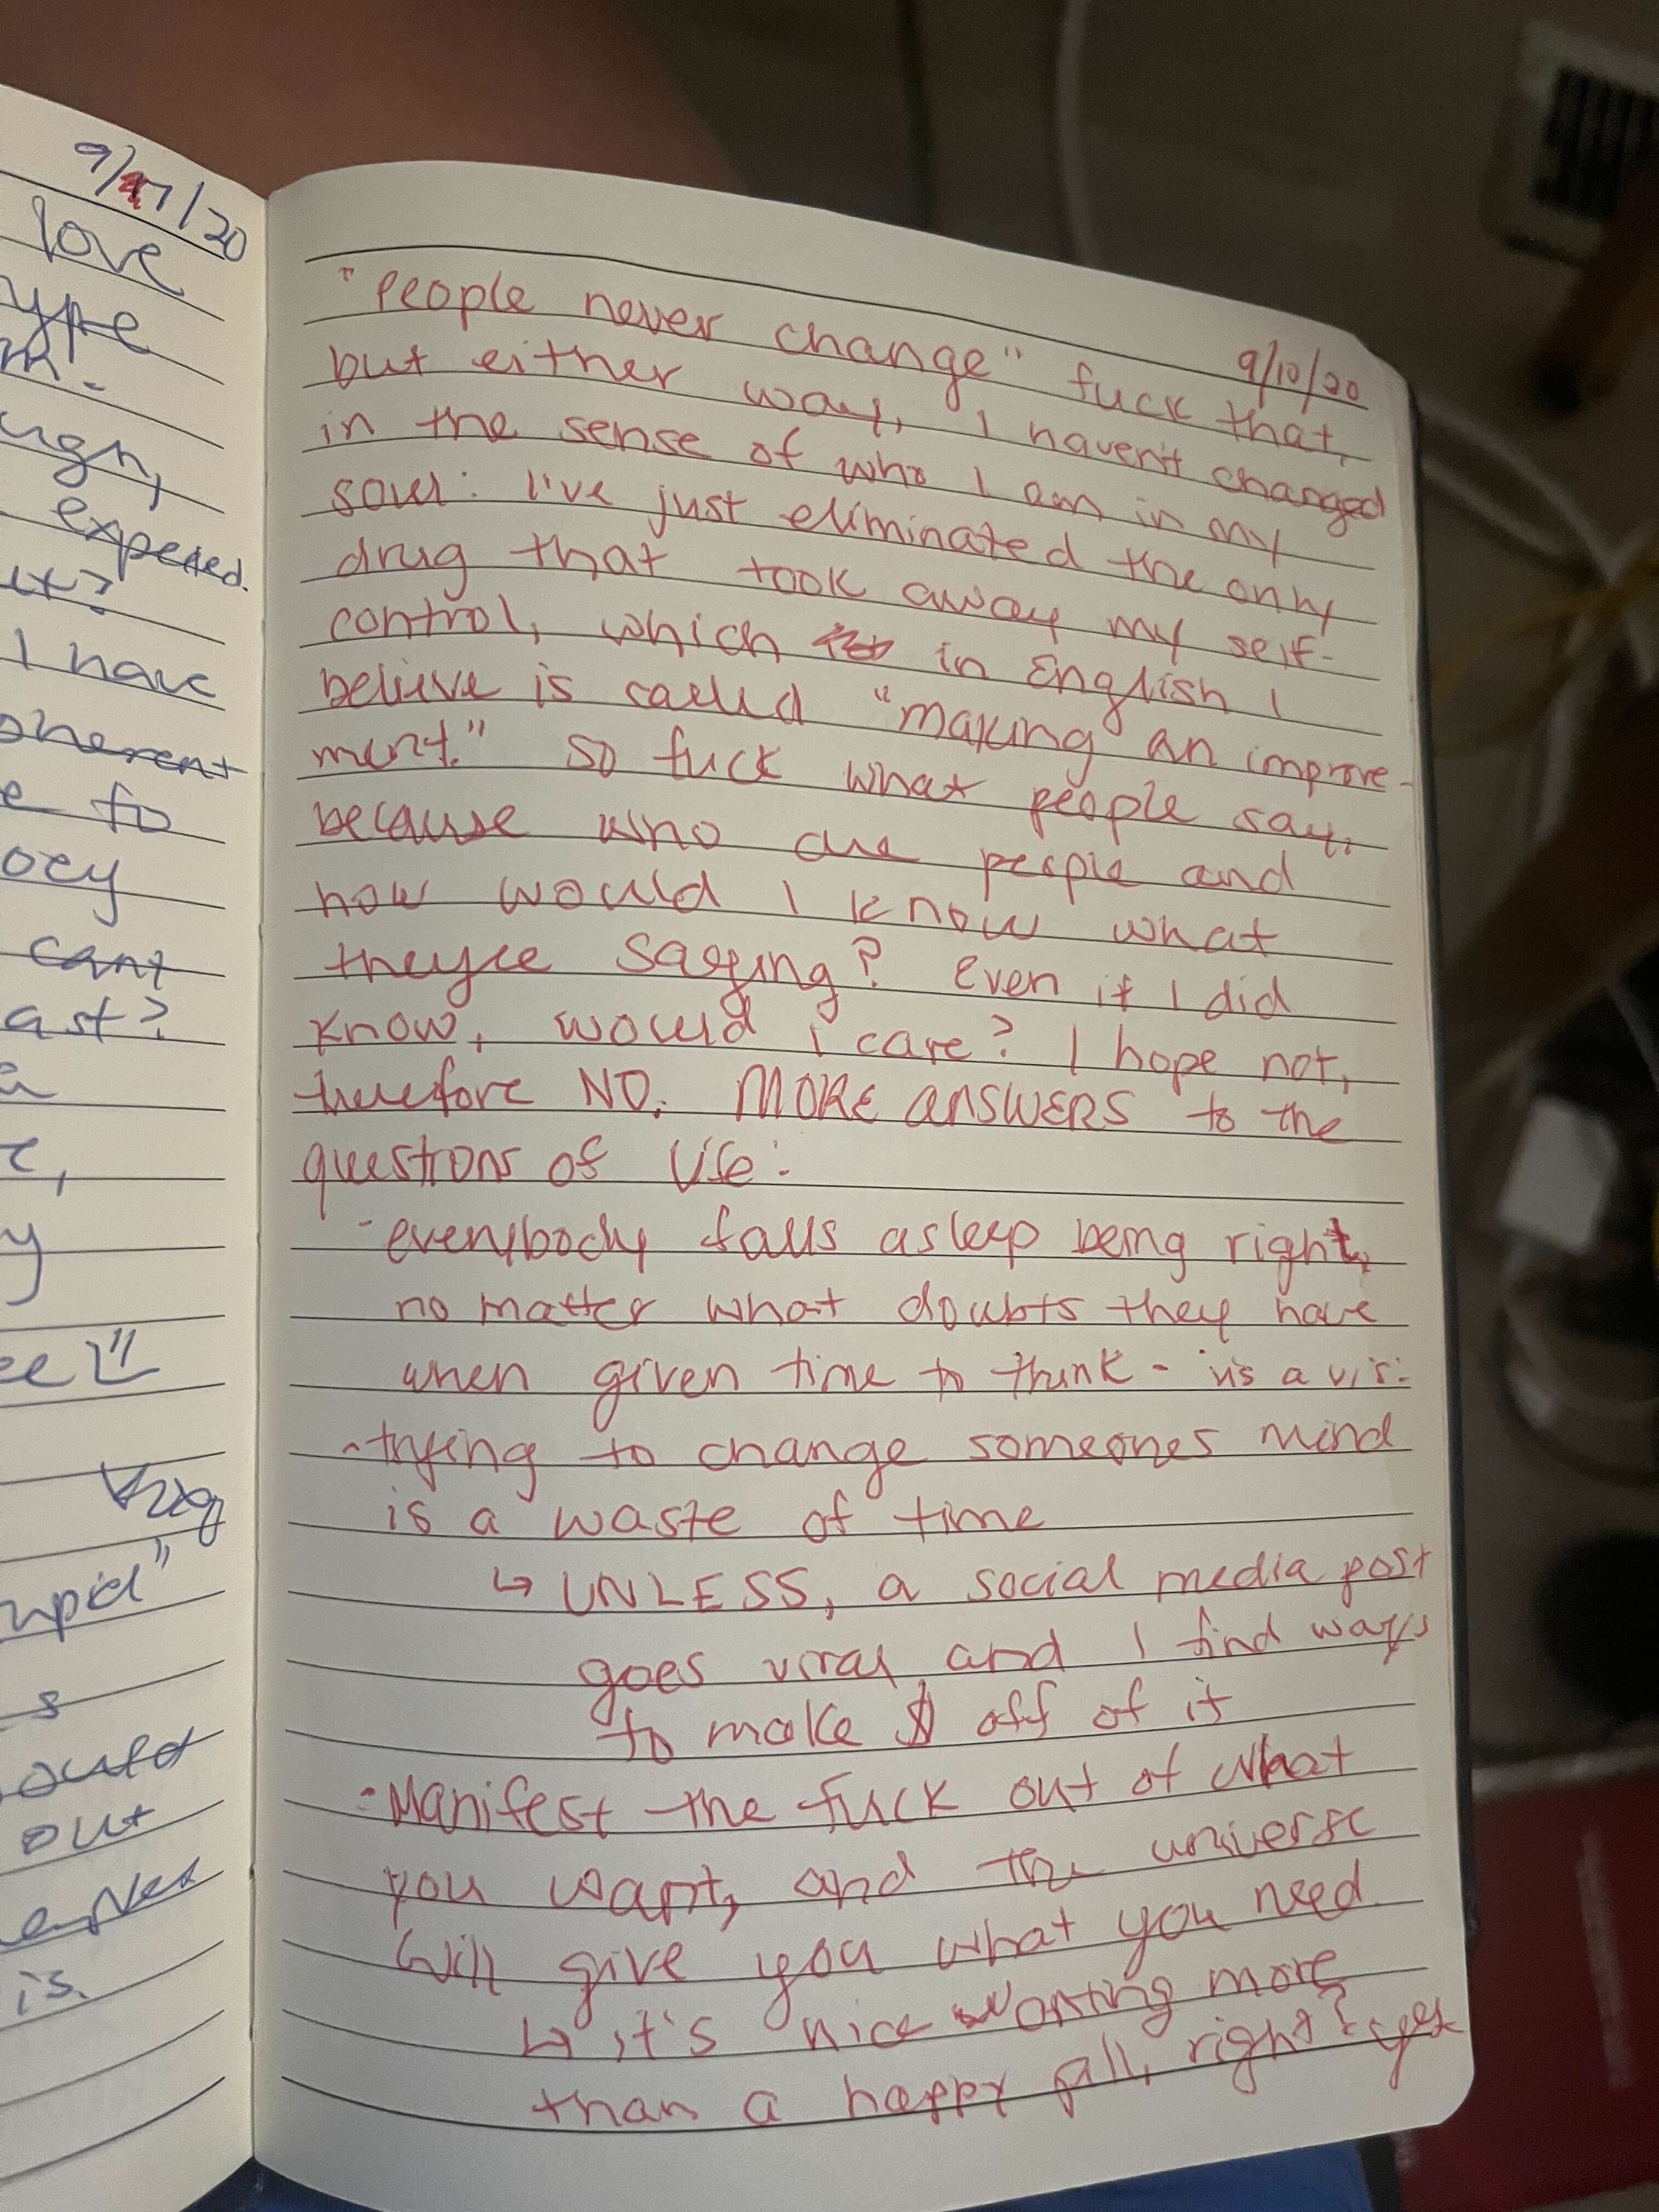 9/7/20
love
ype
m.
ugh,
expected.
it?
I have
oherent
e to
ocy
cant
ast?
a
e,
y
ee
upid"
s
ould
out
is.
9/10/20
"People never change" fuck that,
but either way, I haven't changed
in the sense of who I am in my
soul: I've just eliminated the only
drug that took away my self-
control, which in English I
believe is called "making an improve-
ment." So fuck what people say,
because who are people and
how would I know what
they're saying? Even if I did
know, would i care? I hope not,
therefore NO. MORE ANSWERS to the
questions of life:
- everybody falls asleep being right,
no matter what doubts they have
when given time to think -
- trying to change someones mind
is a waste of time
↳ UNLESS, a social media post
goes viral and I find ways
to make $ off of it
- Manifest the fuck out of what
you want, and the universe
will give you what you need
↳ it's nice wanting more
than a happy fall, right? yes